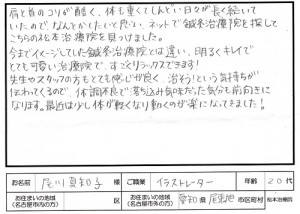 肩と首のコリが酷く、体も重くてしんどい日々が長く続いて
いたので、なんとかしたいと思い、ネットで鍼灸治療院を探して
こちらの松本治療院を見つけました。
今までイメージしていた鍼灸治療院とは違い、明るくキレイで
とても可愛い治療院で、すごくリラックスできます!
先生やスタッフの方もとても感じが良く、治そう!という気持ちが
伝わってくるので、体調不良で落ち込み気味だった気分も前向きに
なります。最近は少し体が軽くなり動くのが楽になってきました!
お名前 尾川 真知子 様 ご職業 イラストレーター 年齢 20代
お住まいの地域(名古屋市内の方) 区 お住まいの地域(名古屋市外の方) 愛知県 市区町村 松本治療院